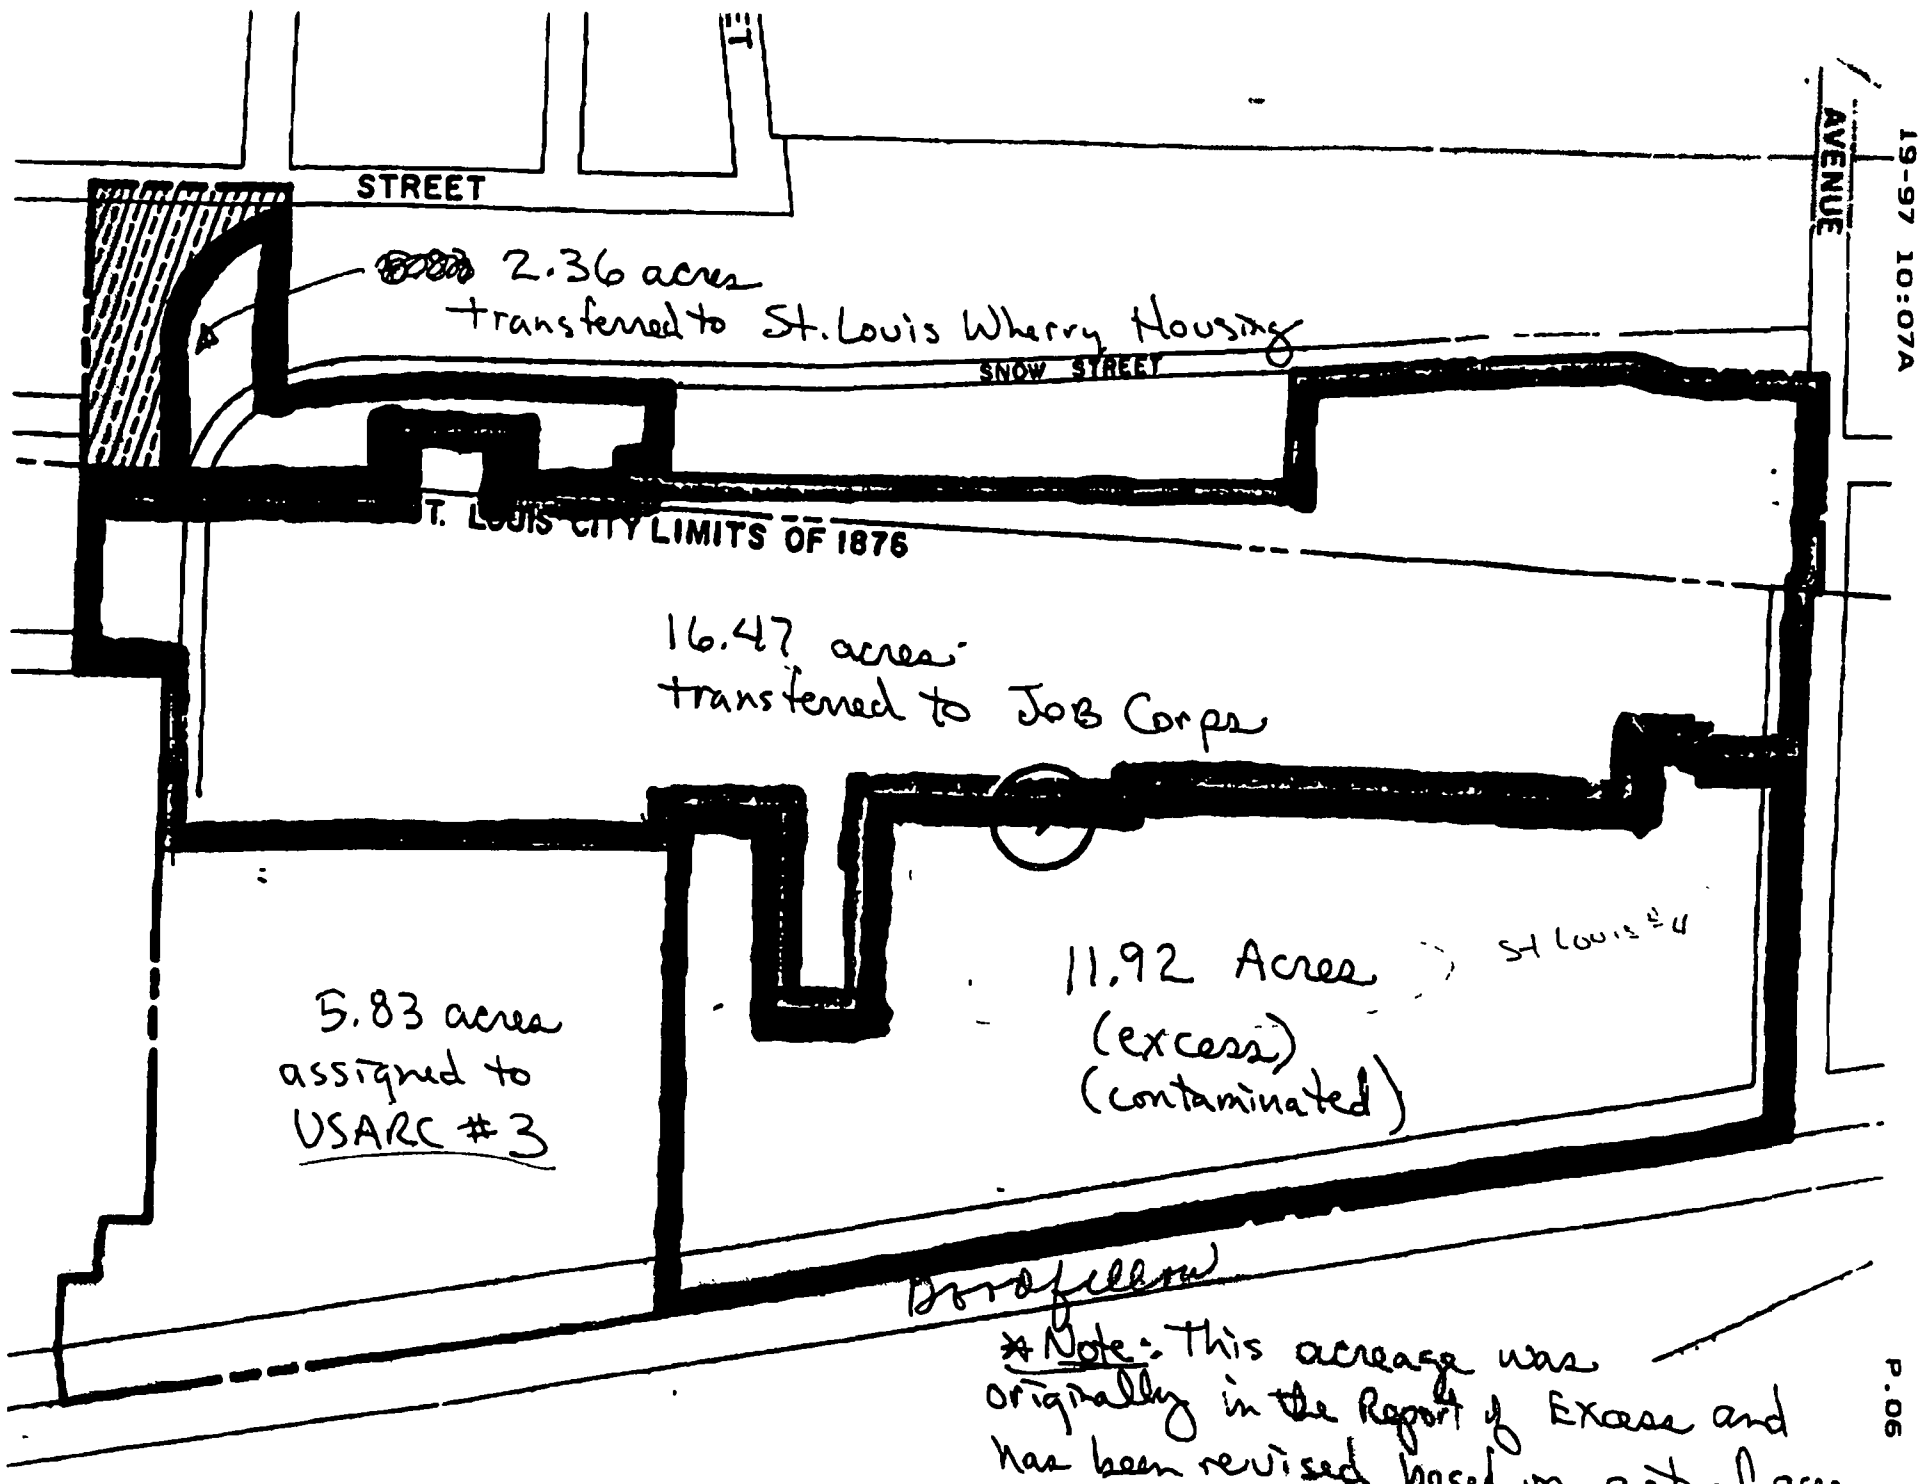 ET
AVENUE
19-97 10:07A
STREET
2.36 acres
transferred to St. Louis Wherry Housing
SNOW STREET
T. LOUIS CITY LIMITS OF 1876
16.47 acres
transferred to JOB Corps
11.92 Acres
(excess)
(contaminated)
St Louis #4
5.83 acres
assigned to
USARC #3
* Note: This acreage was
originally in the Report of Excess and
has been revised based on
P.06